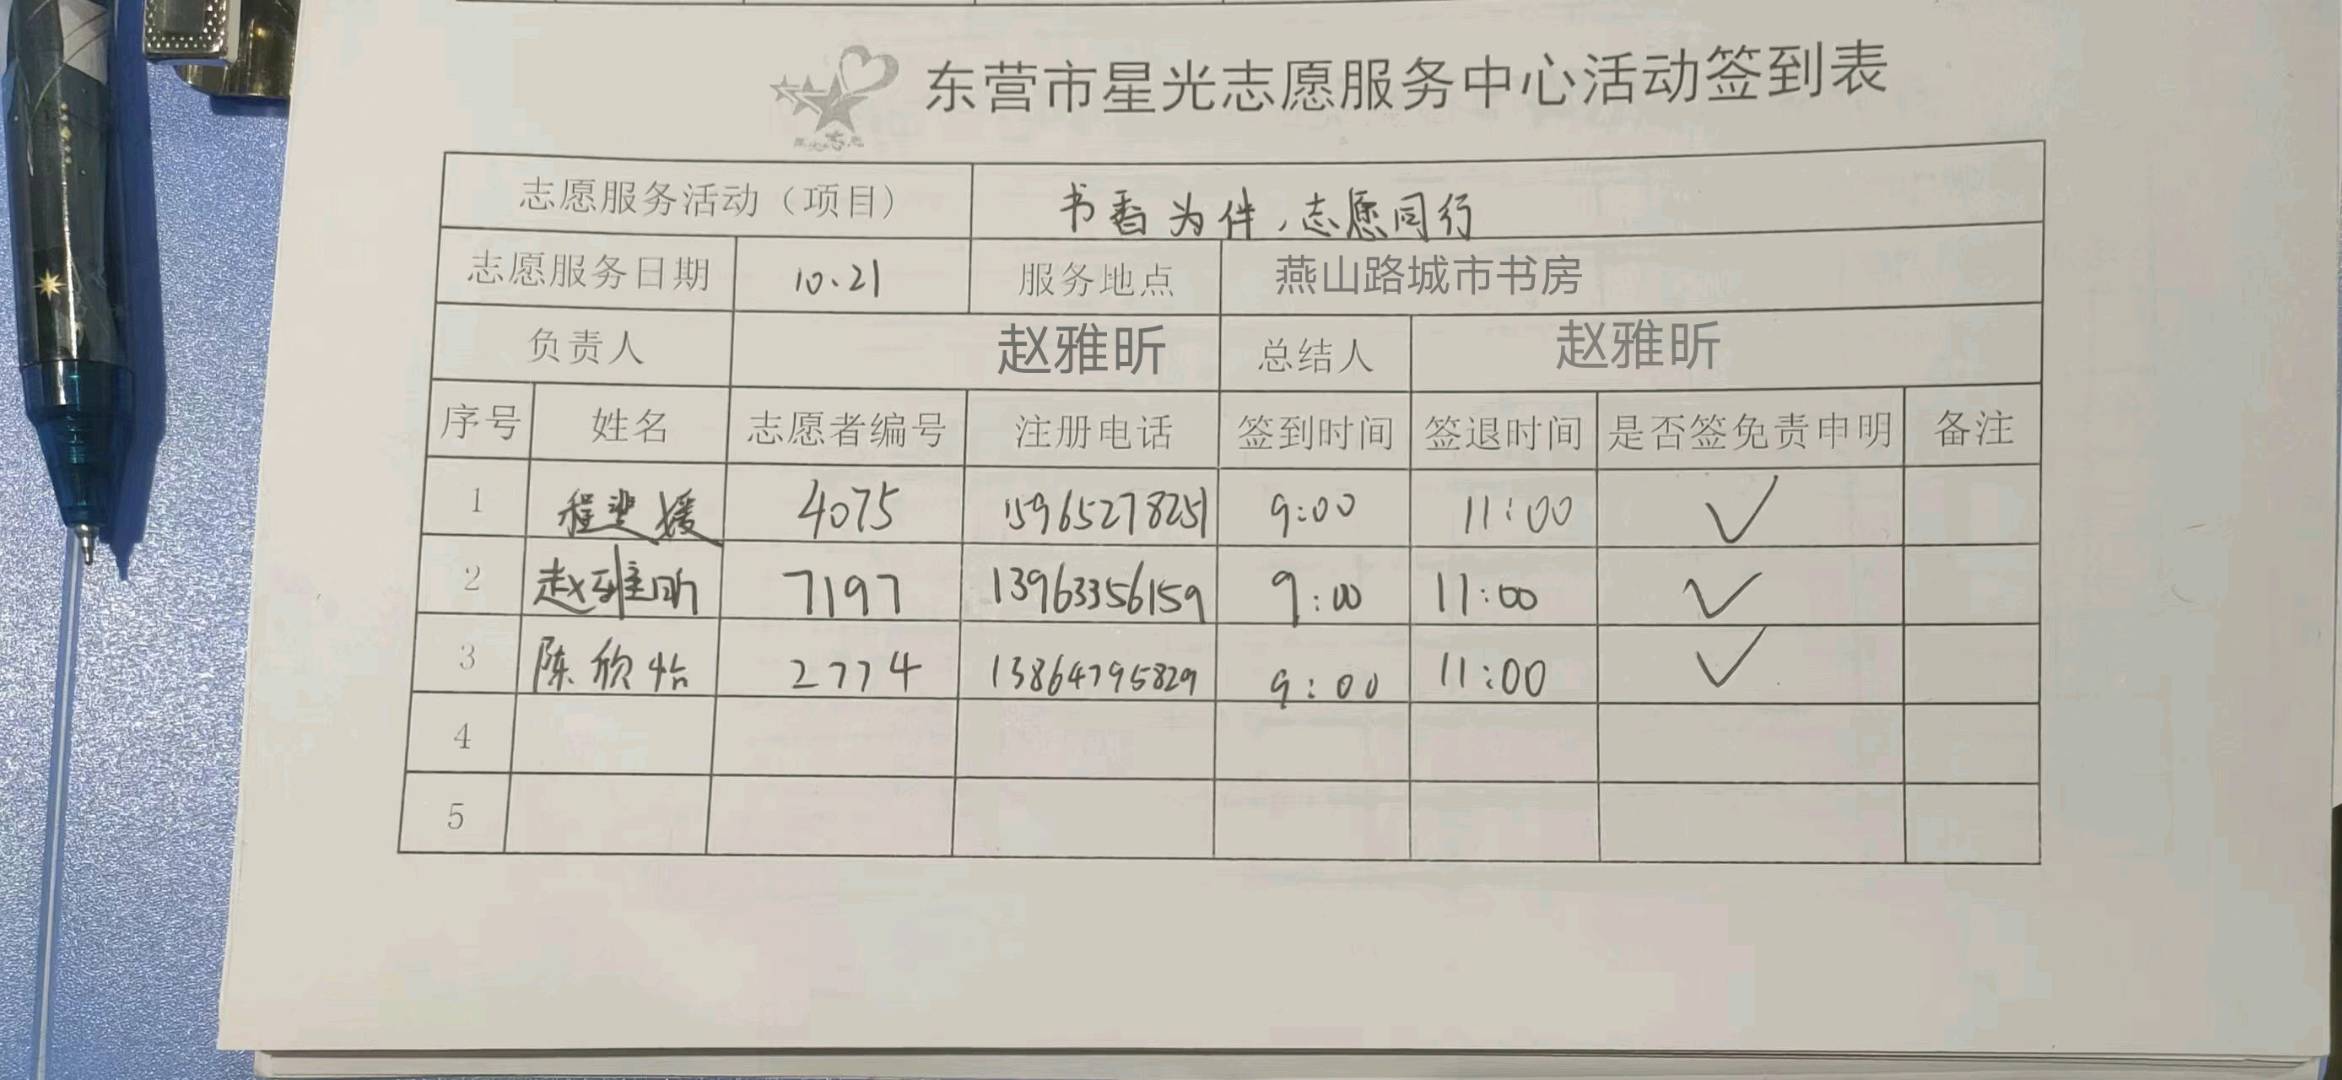 东营市星光志愿服务中心活动签到表
志愿服务活动（项目） 书香为伴，志愿同行
志愿服务日期 10.21 服务地点 燕山路城市书房
负责人 赵雅昕 总结人 赵雅昕
序号 姓名 志愿者编号 注册电话 签到时间 签退时间 是否签免责申明 备注
1 程斐媛 4075 15965278251 9:00 11:00 ✓
2 赵雅昕 7197 13963356159 9:00 11:00 ✓
3 陈欣怡 2774 13864795829 9:00 11:00 ✓
4
5